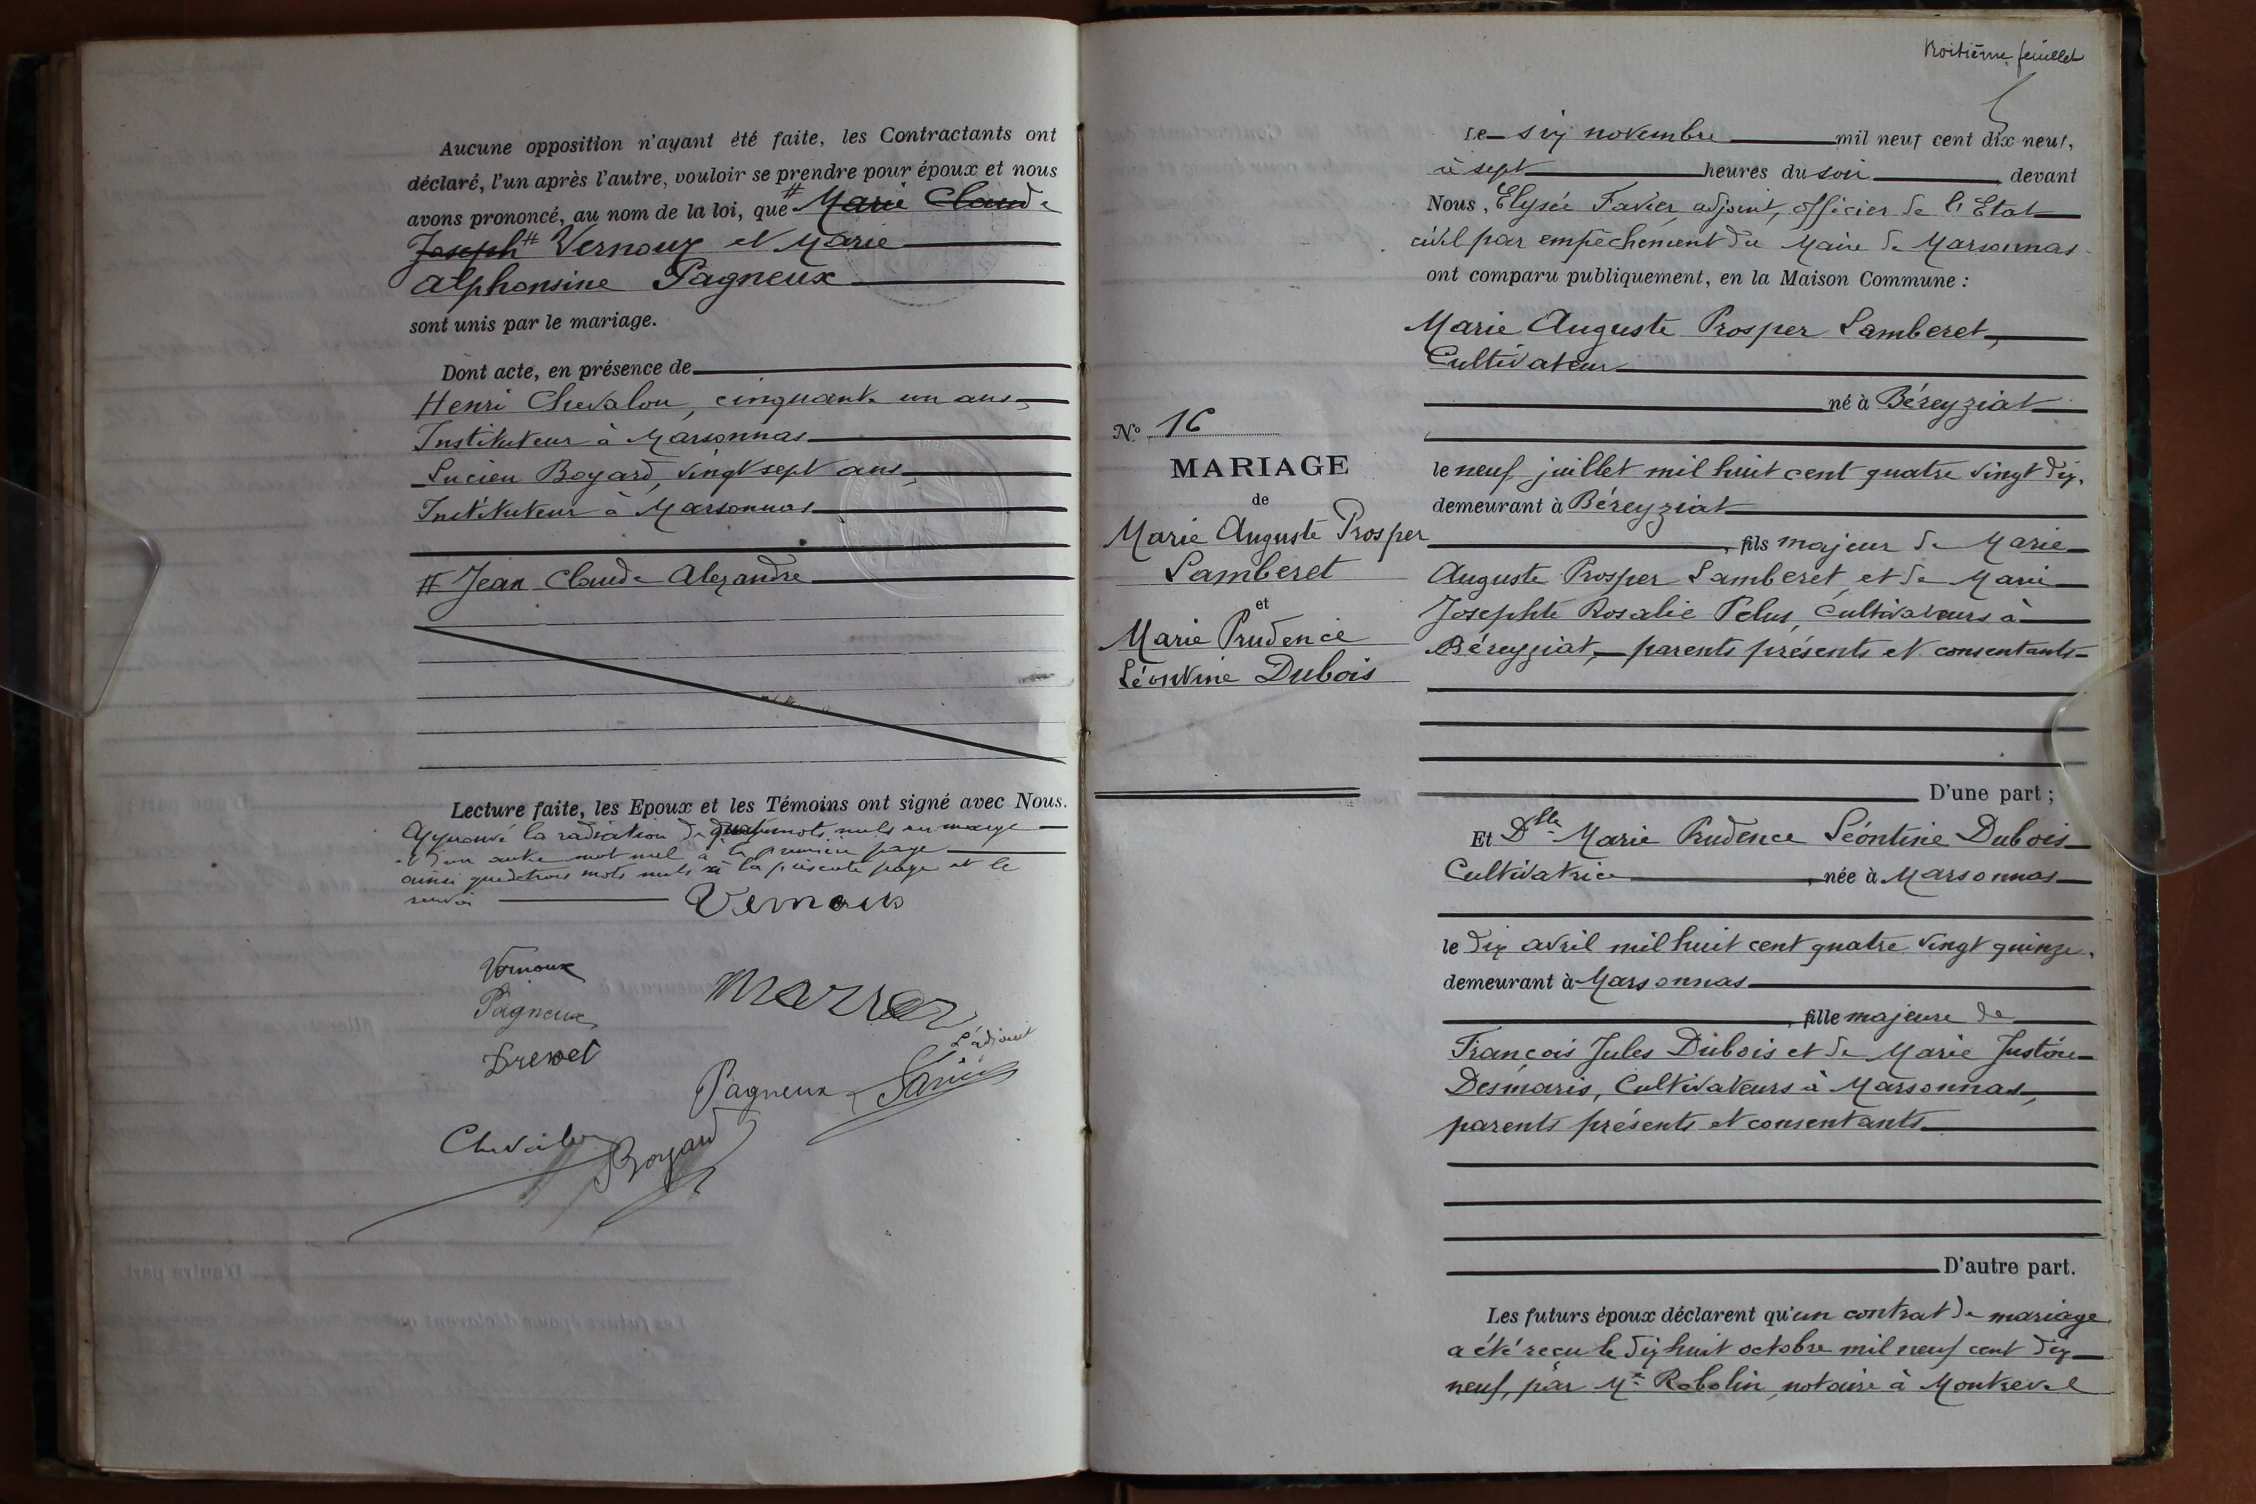 Aucune opposition n'ayant été faite, les Contractants ont
déclaré, l'un après l'autre, vouloir se prendre pour époux et nous
avons prononcé, au nom de la loi, que # Marie Claude
Joseph # Vernoux et Marie
Alphonsine Pagneux
sont unis par le mariage.
Dont acte, en présence de
Henri Chevalon, cinquante un ans,
Instituteur à Marsonnas
Lucien Boyard, vingt sept ans,
Instituteur à Marsonnas
# Jean Claude Alexandre
Lecture faite, les Epoux et les Témoins ont signé avec Nous.
Approuvé la radiation de quatre mots nuls en marge
et d'un autre mot nul à la première page
ainsi que de trois mots nuls à la présente page et le
renvoi
Vernoux
Vernoux
Pagneux
Drevet
L'adjoint
Pagneux
Favier
Chevalon
Boyard
troisième feuillet
Le six novembre mil neuf cent dix-neuf,
à sept heures du soir, devant
Nous, Elysée Favier, adjoint, officier de l'Etat
civil par empêchement du Maire de Marsonnas
ont comparu publiquement, en la Maison Commune :
Marie Auguste Prosper Lamberet,
Cultivateur
né à Béreyziat
No 16
MARIAGE
de
Marie Auguste Prosper
Lamberet
et
Marie Prudence
Léontine Dubois
le neuf juillet mil huit cent quatre vingt dix,
demeurant à Béreyziat
, fils majeur de Marie
Auguste Prosper Lamberet, et de Marie
Josephte Rosalie Pelus, Cultivateurs à
Béreyziat, parents présents et consentants
D'une part ;
Et Dlle Marie Prudence Léontine Dubois
Cultivatrice, née à Marsonnas
le dix avril mil huit cent quatre vingt quinze,
demeurant à Marsonnas
, fille majeure de
François Jules Dubois et de Marie Justine
Desmaris, Cultivateurs à Marsonnas,
parents présents et consentants
D'autre part.
Les futurs époux déclarent qu'un contrat de mariage
a été reçu le dix huit octobre mil neuf cent dix
neuf, par Me Robolin, notaire à Montrevel